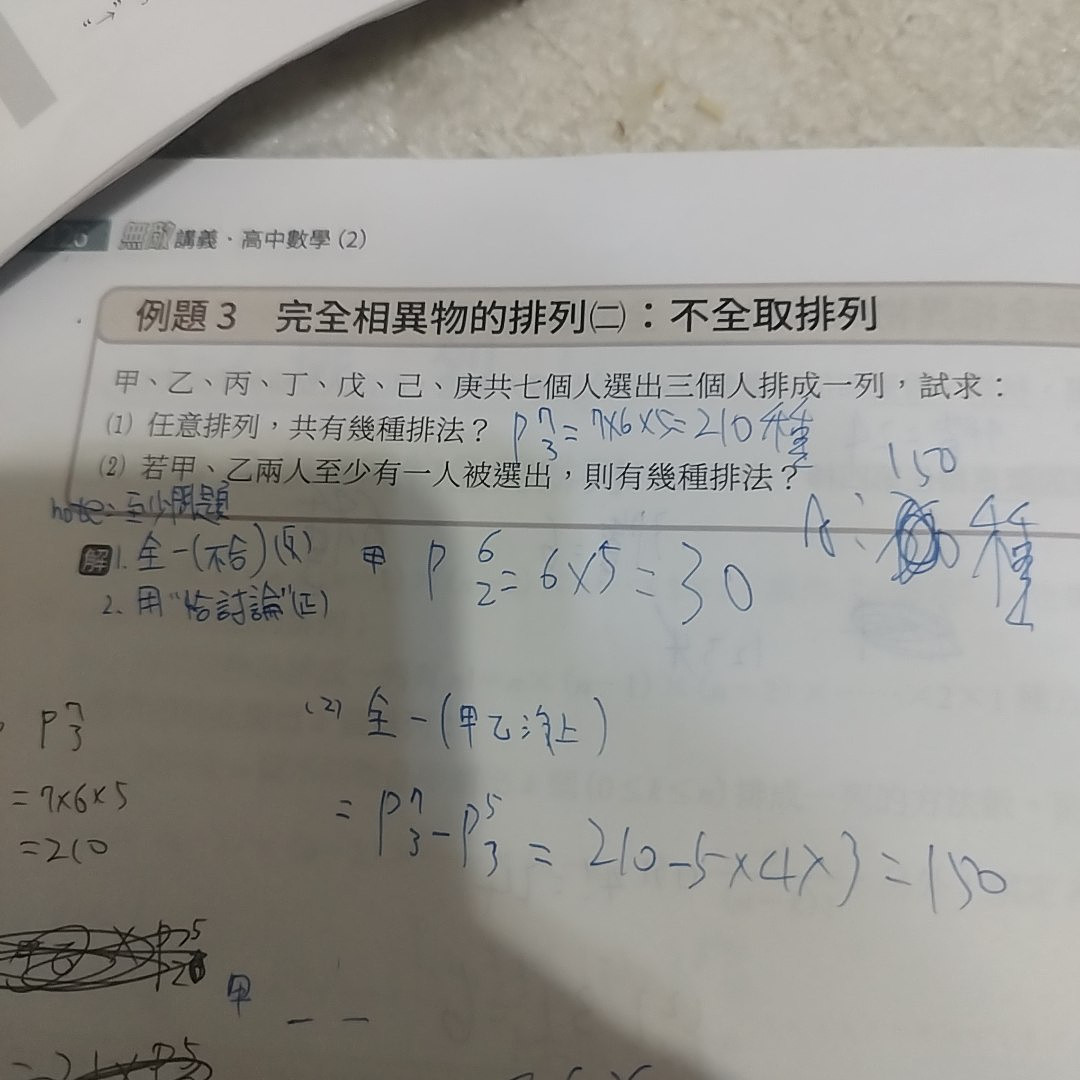 無敵講義．高中數學 (2)
例題 3　完全相異物的排列㈡：不全取排列
甲、乙、丙、丁、戊、己、庚共七個人選出三個人排成一列，試求：
(1) 任意排列，共有幾種排法？ P⁷₃=7×6×5=210種
(2) 若甲、乙兩人至少有一人被選出，則有幾種排法？
150
A: 種
note: 至少問題
解 1. 全-(不合)(反)
2. 用"恰討論"(正)
甲 P⁶₂=6×5=30
P⁷₃
=7×6×5
=210
(2) 全-(甲乙沒上)
=P⁷₃-P⁵₃=210-5×4×3=150
甲 _ _